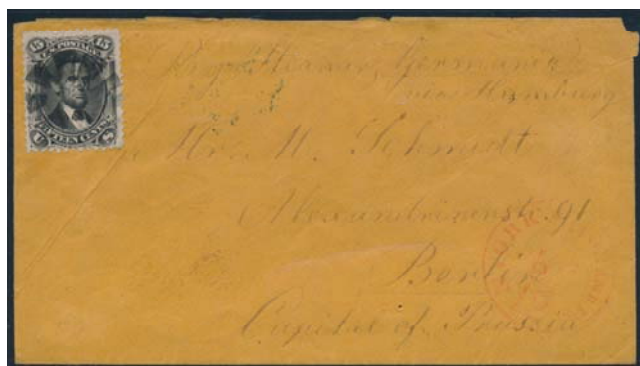 15 U.S. POSTAGE 15
FIFTEEN CENTS
U S
Steamer Germania
via Hamburg
M. Schmidt
Alexandrinenstr. 91
Berlin
Capital of Prussia
YORK